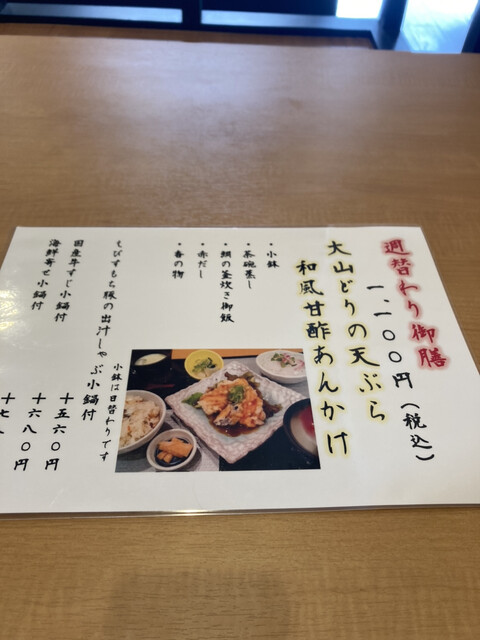 週替わり御膳
一、一〇〇円（税込）
大山どりの天ぷら
和風甘酢あんかけ
・小鉢
・茶碗蒸し
・鯛の釜炊き御飯
・赤だし
・香の物
小鉢は日替わりです
ちびすもち豚の出汁しゃぶ小鍋付 十五六〇円
国産牛すじ小鍋付 十六八〇円
海鮮寄せ小鍋付 十七八